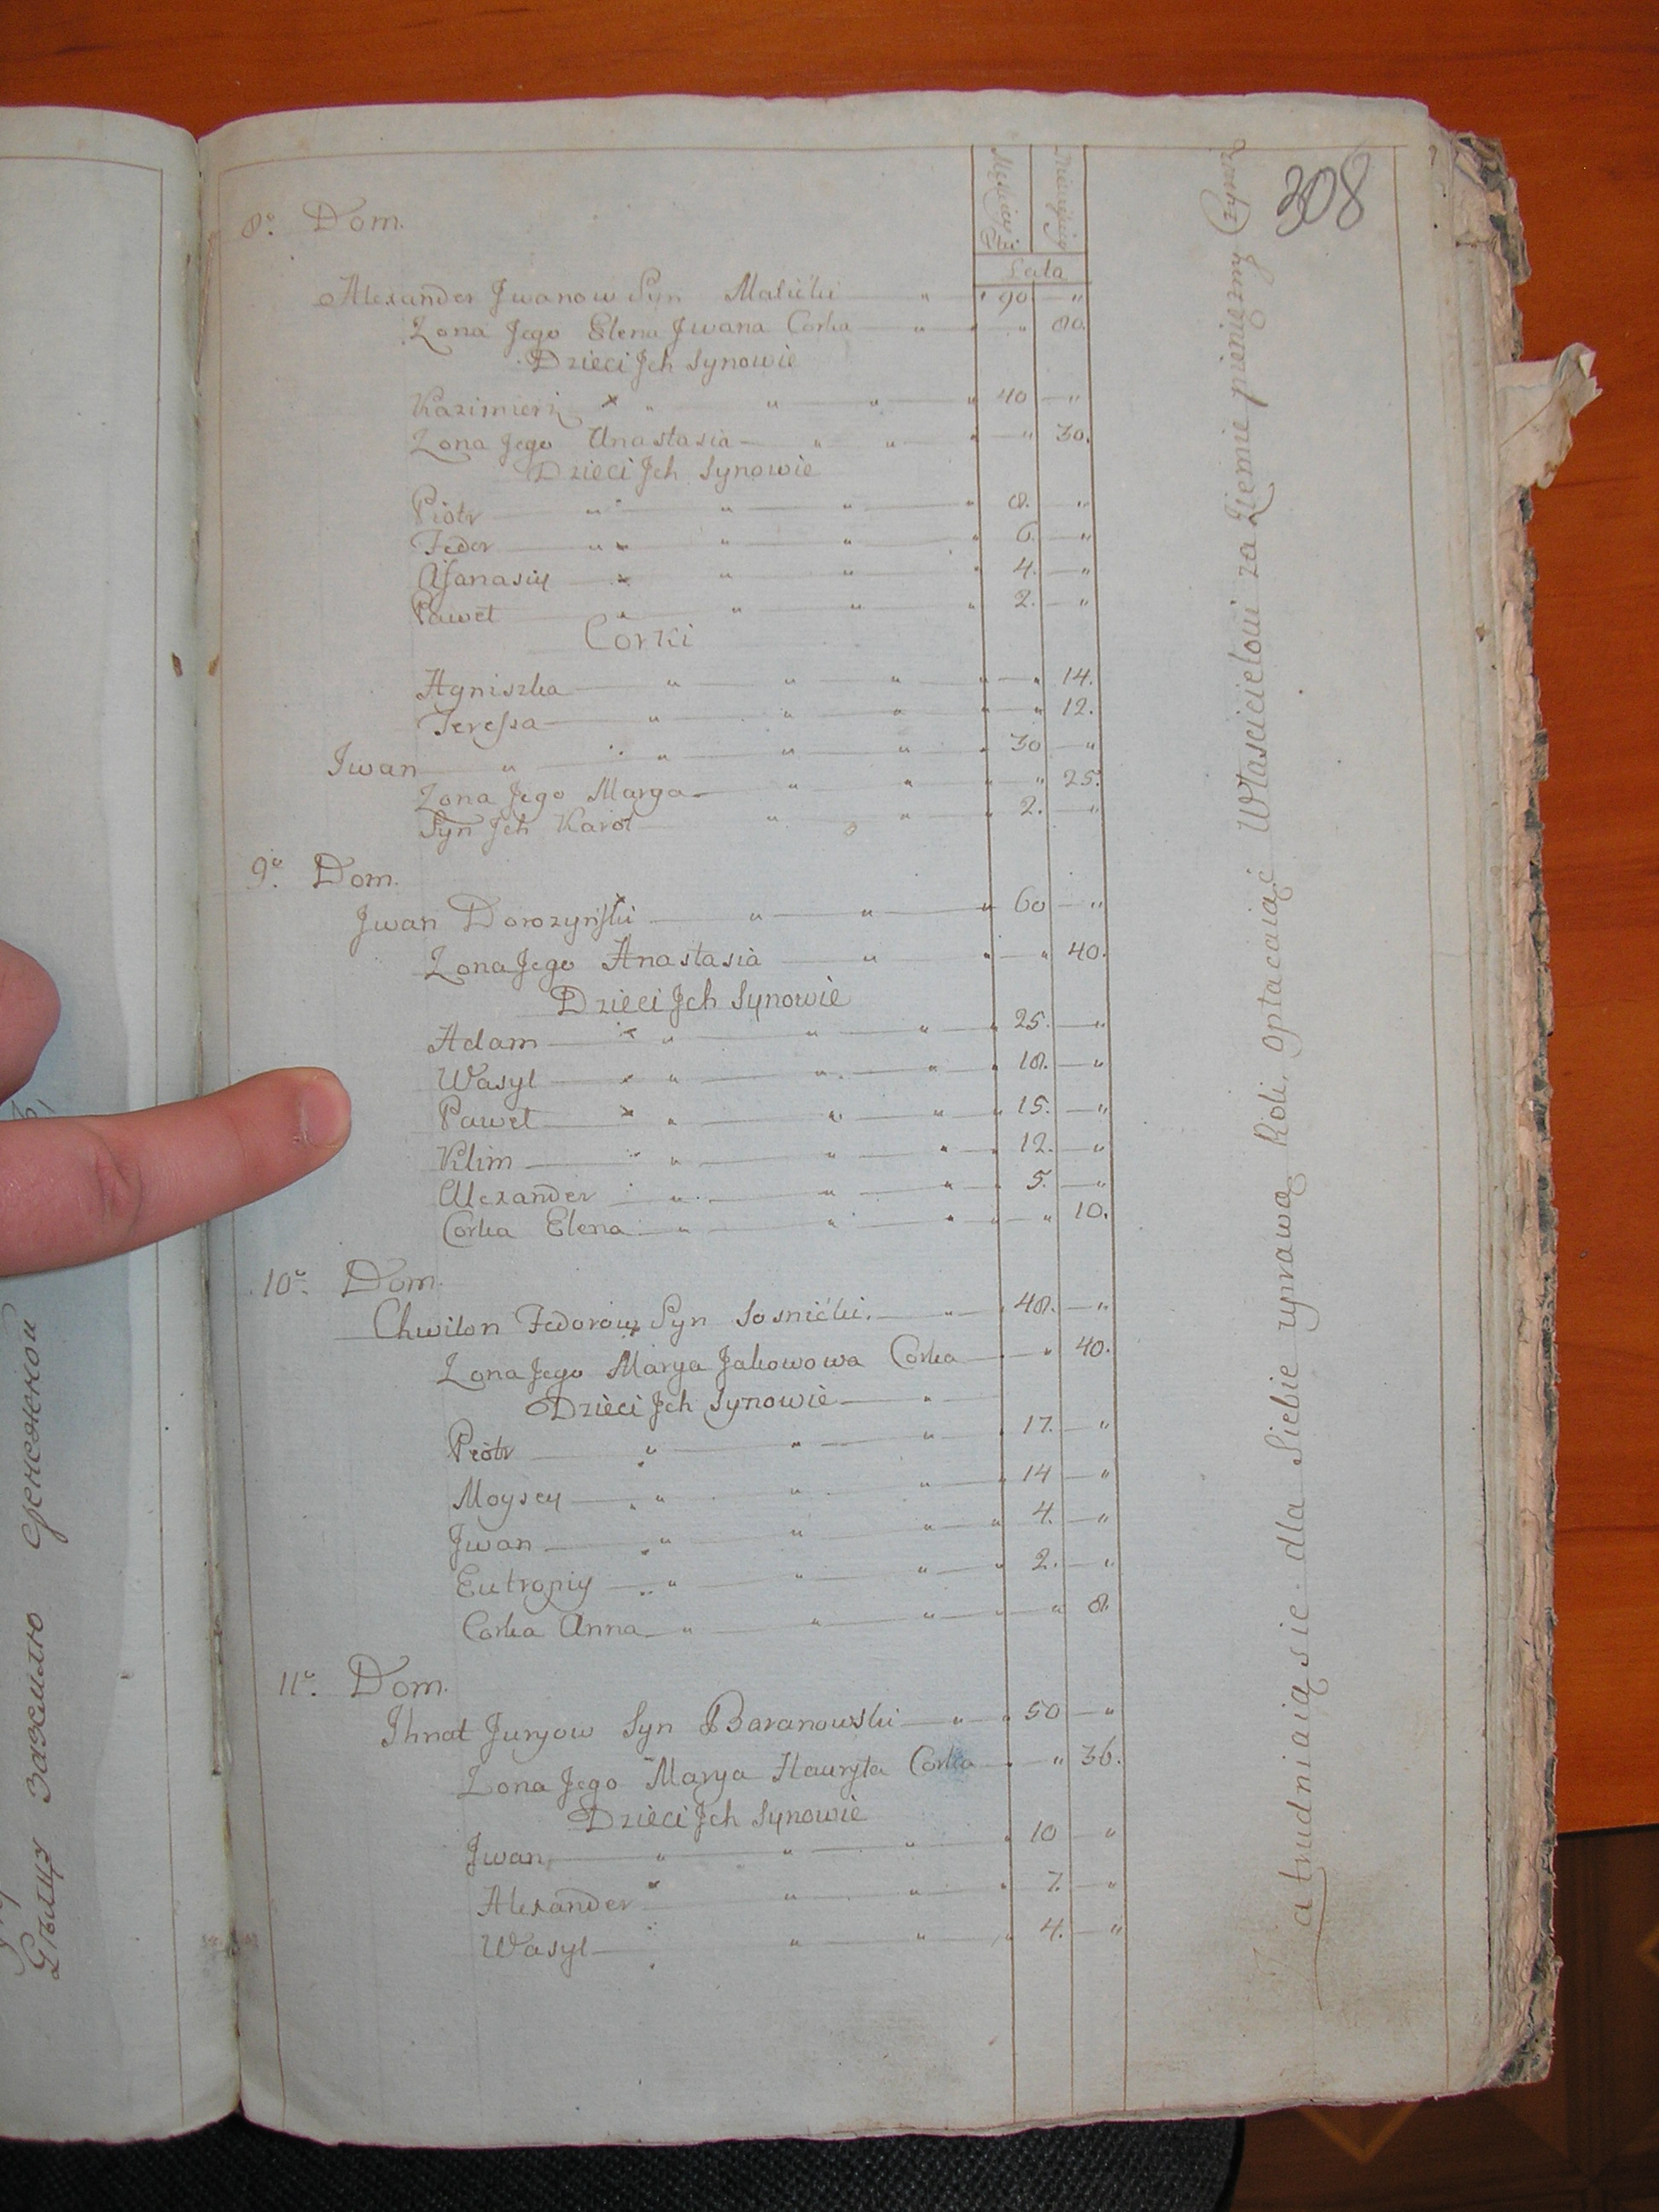 308
Męskiey Płci
Lata
8º. Dom.
Alexander Jwanow Syn Malicki " " 90 — "
Zona Jego Elena Jwana Corka — " " " 80.
Dzieci Jch Synowie
Kazimierz × " " " " 40 — "
Zona Jego Anastasia — " " " — " 30.
Dzieci Jch Synowie
Piotr — " " " " 8. — "
Fedor — " " " " 6. — "
Afanasiy — × " " " 4. — "
Paweł — " " " " 2. — "
Corki
Agniszka — " " " " — " 14.
Teressa — " " " " — " 12.
Jwan — " " " " " 30 — "
Zona Jego Marya — " " " — " 25.
Syn Jch Karol — " " " 2. — "
9º. Dom.
Jwan Dorozynski — " " " 60 — "
Zona Jego Anastasia — " " — " 40.
Dzieci Jch Synowie
Adam — × " " " " 25. — "
Wasyl — × " " " " 18. — "
Paweł — × " " " " 15. — "
Klim — " " " " 12. — "
Alexander — " " " " 5. — "
Corka Elena — " " " " — " 10.
10º. Dom.
Chwilon Fedorow Syn Sosnicki. — " " 48. — "
Zona Jego Marya Jakowowa Corka — " — " 40.
Dzieci Jch Synowie — "
Piotr — " " " " 17. — "
Moysey — " " " " 14 — "
Jwan — " " " " 4. — "
Eutropiy — " " " " 2. — "
Corka Anna — " " " " — " 8.
11º. Dom.
Jhnat Juryow Syn Baranowski — " " 50 — "
Zona Jego Marya Hawryła Corka — " — " 36.
Dzieci Jch Synowie
Jwan, — " " " " 10 — "
Alexander — " " " " 7. — "
Wasyl — " " " 4. — "
Zatrudniaią sie dla Siebie uprawą Roli, opłacaiąć Włascicielowi za Ziemie pieniezny Czynsz
за землю